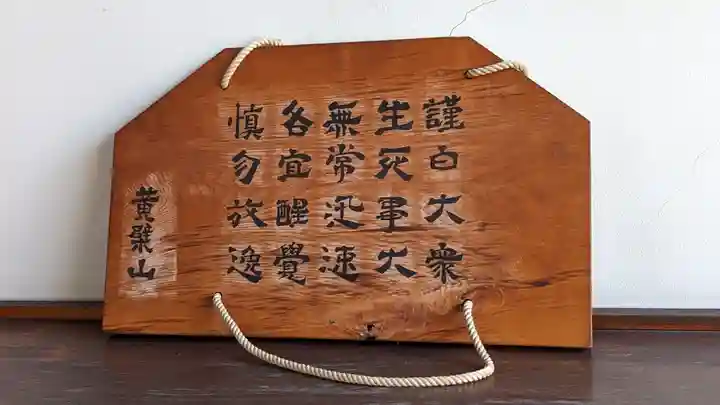 謹白大衆
生死事大
無常迅速
各宜醒覺
慎勿放逸
黄檗山